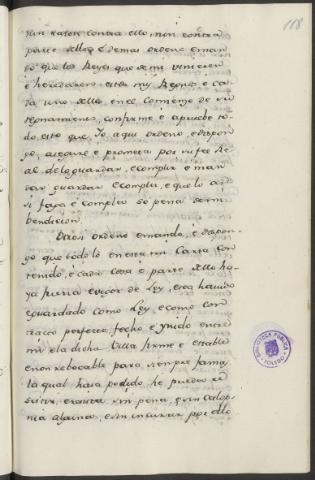 118
sun razon contra ello, nin contra
parte dello; e demas ordeno e man
do que los Reyes que de mi vinieren
e heredaren estos mis Regnos e ca
da uno dello, en el comienzo de su
regnamiento, confirme e apruebe to
do esto que Yo aqui ordeno, e dispon
go, asegure e prometa por su fee Re
al de lo guardar, e complir e man
dar guardar e complir, e que lo asi
si faga e compla so pena de mi
bendicion.
Otrosi ordeno e mando, e dispon
go que todo lo en esta mi Carta con
tenido, e cada cosa e parte dello ha
ya fuerza e vigor de Ley, e sea havido
e guardado como Ley, e como con
tracto perfecto, fecho e firmado entre
mi e la dicha Villa firme e estable
e non rebocable para siempre jamas
la qual haia podido he pueda re
sistir, e sin pena, e sin calop
nia alguna, e sin incurrir por ello
BIBLIOTECA PUBLICA
TOLEDO